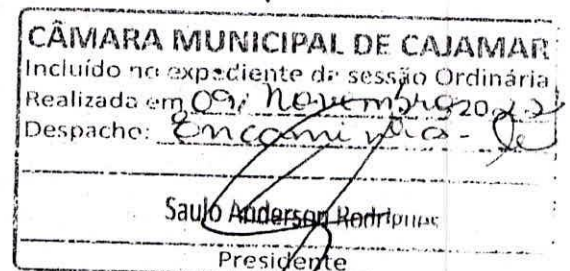 CÂMARA MUNICIPAL DE CAJAMAR
Incluído no expediente da sessão Ordinária
Realizada em 09/ novembro 2022
Despacho: Encaminha-se
Saulo Anderson Rodrigues
Presidente